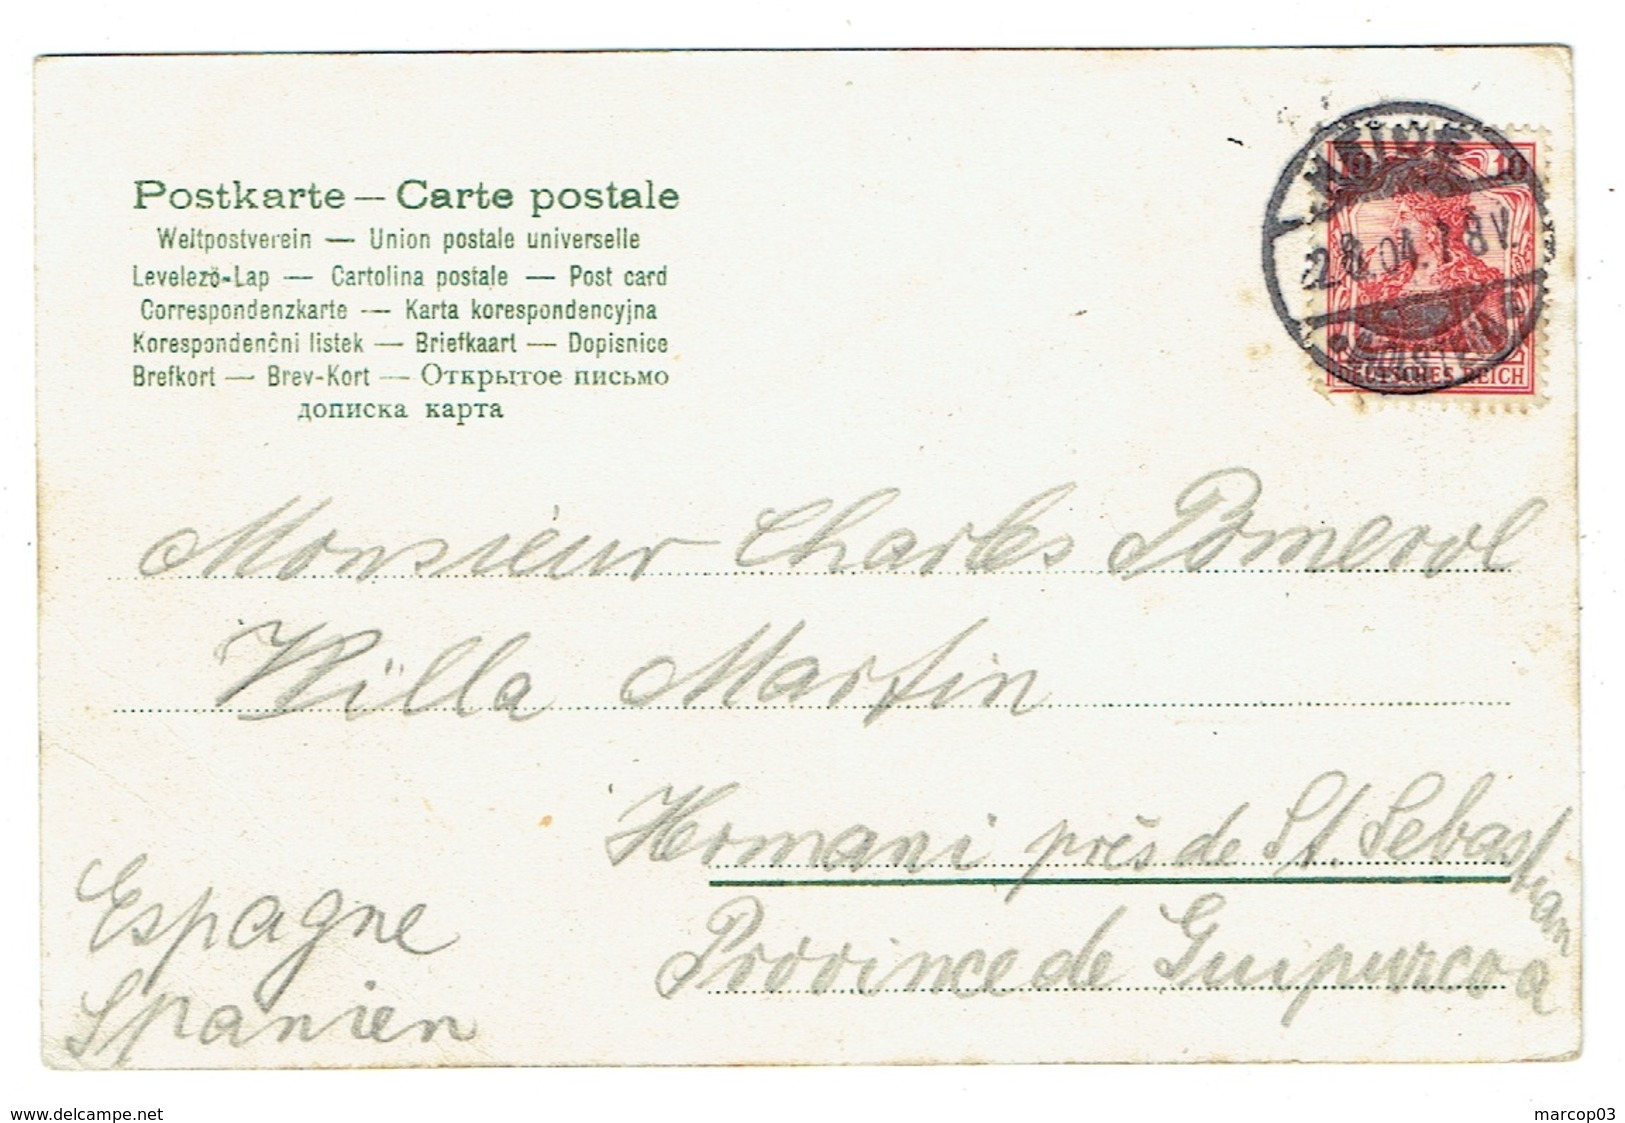 Postkarte — Carte postale
Weltpostverein — Union postale universelle
Levelező-Lap — Cartolina postale — Post card
Correspondenzkarte — Karta korespondencyjna
Korespondenční listek — Briefkaart — Dopisnice
Brefkort — Brev-Kort — Открытое письмо
дописка карта
10 10
HEIDE
04. 7.8V.
HOLSTEIN
DEUTSCHES REICH
Monsieur Charles Pomerol
Willa Martin
Hermani près de St. Sebastian
Province de Guipurcoa
Espagne
Spanien
www.delcampe.net
marcop03